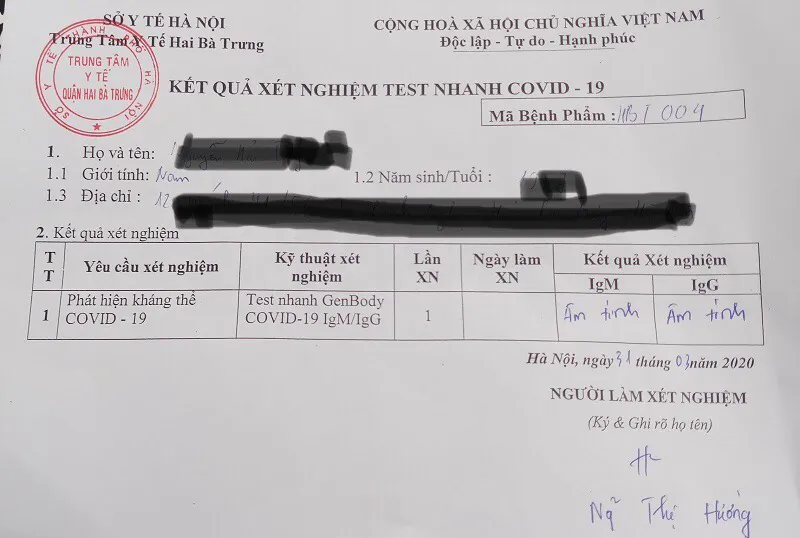 SỞ Y TẾ HÀ NỘI
Trung Tâm Y Tế Hai Bà Trưng
CỘNG HOÀ XÃ HỘI CHỦ NGHĨA VIỆT NAM
Độc lập - Tự do - Hạnh phúc
SỞ Y TẾ THÀNH PHỐ HÀ NỘI
TRUNG TÂM
Y TẾ
QUẬN HAI BÀ TRƯNG
KẾT QUẢ XÉT NGHIỆM TEST NHANH COVID - 19
Mã Bệnh Phẩm : HBT 004
1. Họ và tên:
1.1 Giới tính: Nam
1.2 Năm sinh/Tuổi :
1.3 Địa chỉ : 12
2. Kết quả xét nghiệm
TT Yêu cầu xét nghiệm Kỹ thuật xét nghiệm Lần XN Ngày làm XN Kết quả Xét nghiệm
IgM IgG
1 Phát hiện kháng thể COVID - 19 Test nhanh GenBody COVID-19 IgM/IgG 1 Âm tính Âm tính
Hà Nội, ngày 31 tháng 03 năm 2020
NGƯỜI LÀM XÉT NGHIỆM
(Ký & Ghi rõ họ tên)
Thị Hương